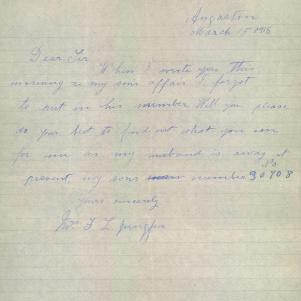 Angaston
March 15 1918
Dear Sir
When I wrote you this
morning re my sons affair I forgot
to put in his number Will you please
do your best to find out what you can
for me as my husband is away at
present, my sons number No 30708
Yours sincerely
Mrs F L